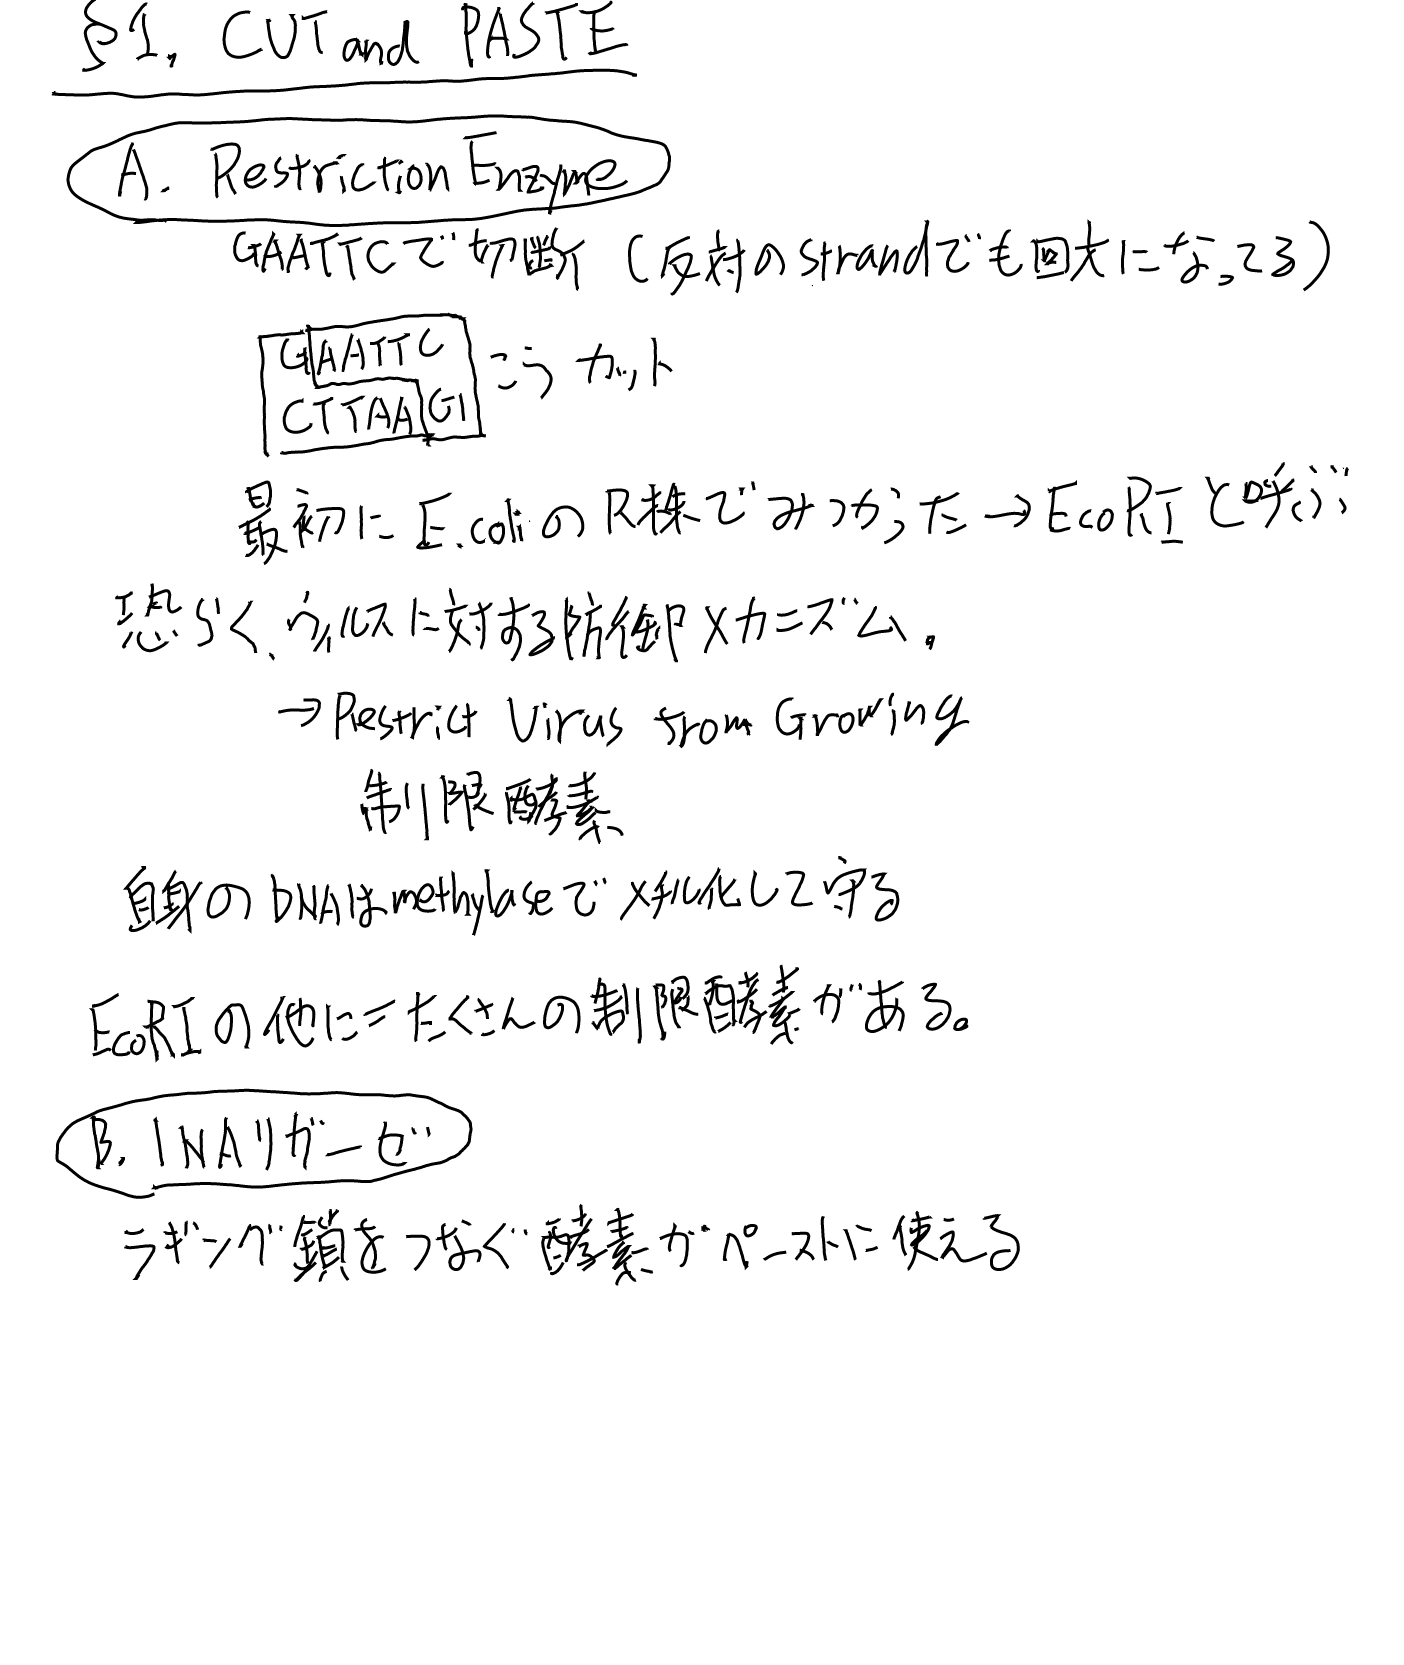 §1. CUT and PASTE
A. Restriction Enzyme
GAATTCで切断 (反対のstrandでも回文になってる)
GAATTC
CTTAAG
こうカット
最初にE.coliのR株でみつかった→EcoRIと呼ぶ
恐らく、ウィルスに対する防御メカニズム。
→Restrict Virus from Growing
制限酵素
自身のDNAはmethylaseでメチル化して守る
EcoRIの他にたくさんの制限酵素がある。
B. DNAリガーゼ
ラギング鎖をつなぐ酵素がペーストに使える